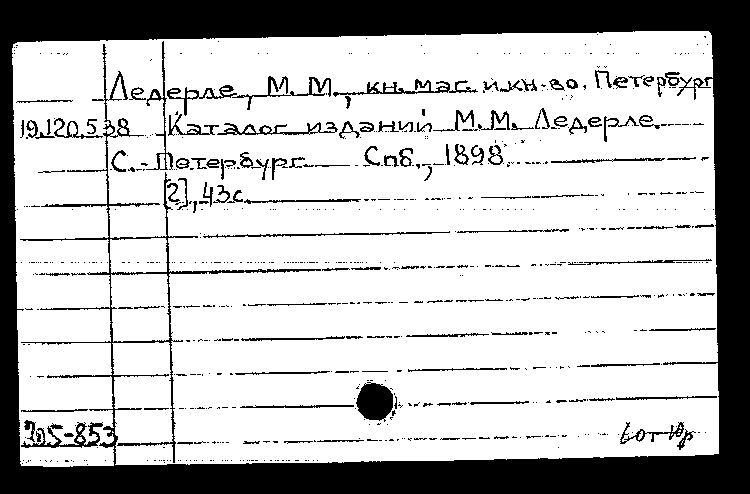 Ледерле, М. М., кн. маг. и кн-во. Петербург
19.120.5.38 Каталог изданий М. М. Ледерле.
С.-Петербург. Спб., 1898.
[2], 43с.
205-853